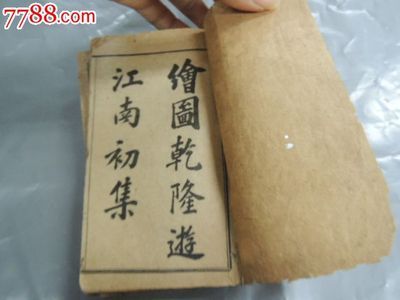 7788.com
繪圖乾隆遊
江南初集